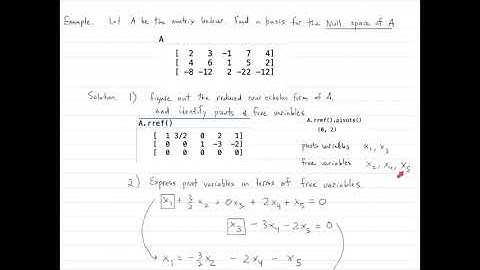 Example. Let A be the matrix below. Find a basis for the Null space of A
A
[ 2 3 -1 7 4]
[ 4 6 1 5 2]
[ -8 -12 2 -22 -12]
Solution 1) figure out the reduced row echelon form of A.
and identify pivots & free variables.
A.rref()
A.rref().pivots()
(0, 2)
[ 1 3/2 0 2 1]
[ 0 0 1 -3 -2]
[ 0 0 0 0 0]
pivots variables x₁, x₃
free variables x₂, x₄, x₅
2) Express pivot variables in terms of free variables.
x₁ + 3/2 x₂ + 0x₃ + 2x₄ + x₅ = 0
x₃ - 3x₄ - 2x₅ = 0
x₁ = -3/2 x₂ - 2x₄ - x₅